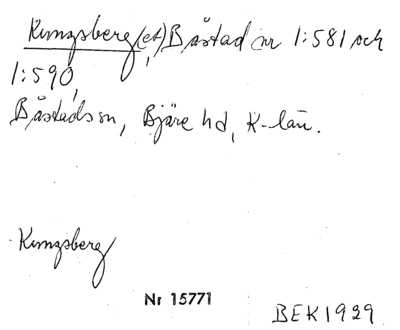 Kungsberg(et), Båstad nr 1:581 och
1:590,
Båstads sn, Bjäre hd, K-län.
Kungsberg
Nr 15771
BEK1929